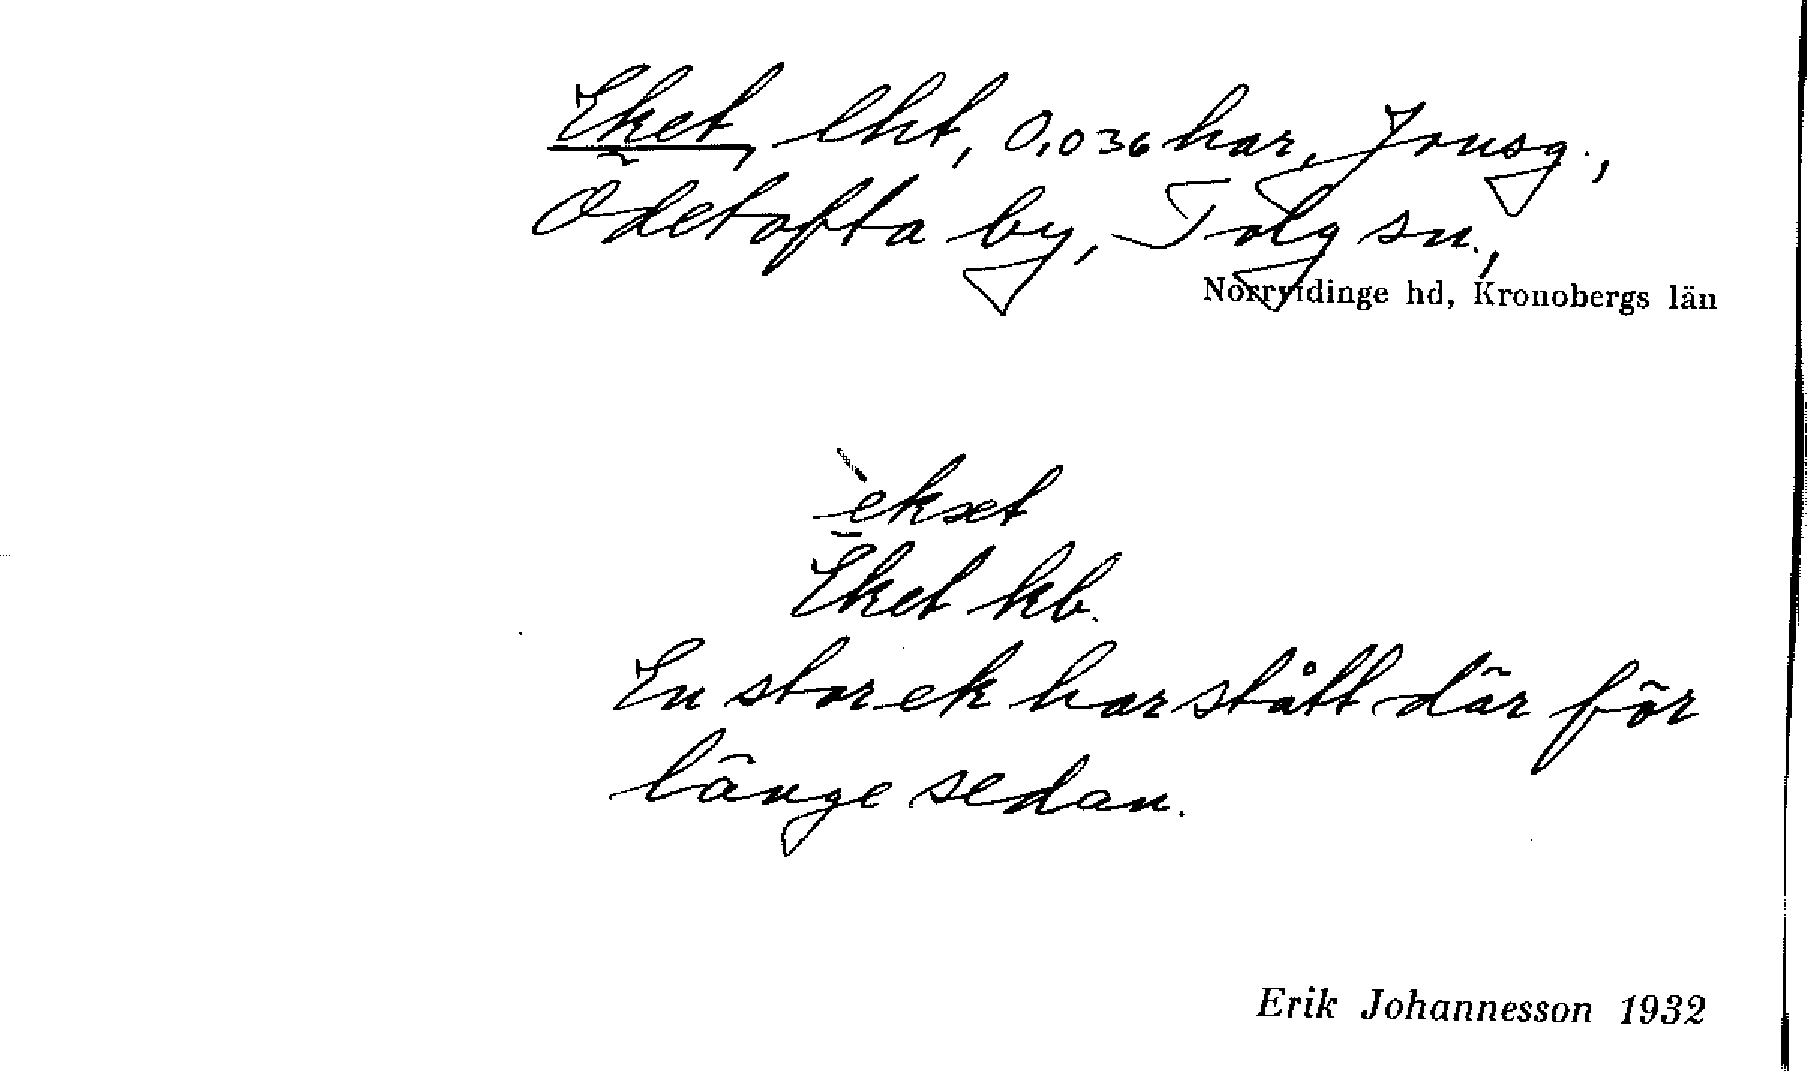 Eket, lht, 0,036 har, Jonsg.,
Ödetofta by, Tolg sn.,
Norrvidinge hd, Kronobergs län
èkæt
Eket kb.
En stor ek har stått där för
länge sedan.
Erik Johannesson 1932